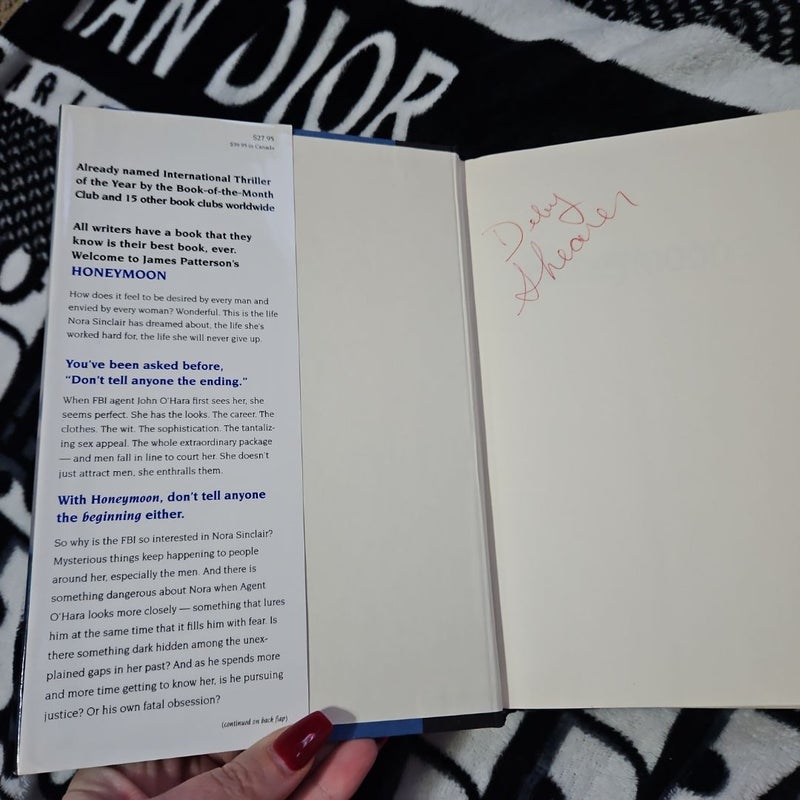 AN DIOR
ARI
$27.95
$39.95 in Canada
Already named International Thriller
of the Year by the Book-of-the-Month
Club and 15 other book clubs worldwide
All writers have a book that they
know is their best book, ever.
Welcome to James Patterson's
HONEYMOON
How does it feel to be desired by every man and
envied by every woman? Wonderful. This is the life
Nora Sinclair has dreamed about, the life she's
worked hard for, the life she will never give up.
You've been asked before,
"Don't tell anyone the ending."
When FBI agent John O'Hara first sees her, she
seems perfect. She has the looks. The career. The
clothes. The wit. The sophistication. The tantaliz-
ing sex appeal. The whole extraordinary package
— and men fall in line to court her. She doesn't
just attract men, she enthralls them.
With Honeymoon, don't tell anyone
the beginning either.
So why is the FBI so interested in Nora Sinclair?
Mysterious things keep happening to people
around her, especially the men. And there is
something dangerous about Nora when Agent
O'Hara looks more closely — something that lures
him at the same time that it fills him with fear. Is
there something dark hidden among the unex-
plained gaps in her past? And as he spends more
and more time getting to know her, is he pursuing
justice? Or his own fatal obsession?
(continued on back flap)
Deby
Shearer